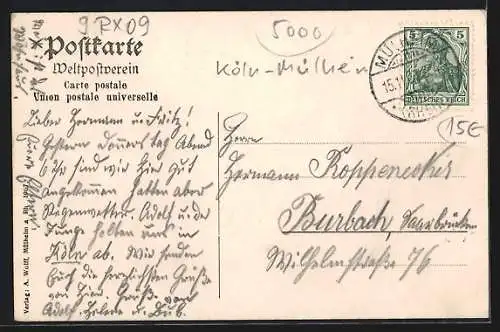 9 RX09
5000
Postkarte
Weltpostverein
Carte postale
Union postale universelle
Köln-Mülheim
5
DEUTSCHES REICH
15€
Lieber Hermann u. Fritz!
Gestern Donnerstag Abend
6 Uhr sind wir hier gut
angekommen hatten aber
Regenwetter. Adolf u. die
Jungs holten uns in
Köln ab. Wir senden
Euch die herzlichsten Grüße
von hier. Grüße von
Adolf, Helene u. Bub.
Herrn
Hermann Koppenecker
Burbach, Saarbrücken
Wilhelmstraße 76
Verlag: A. Wolff, Mülheim a. Rh.